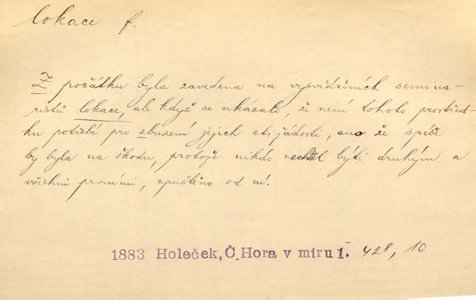 lokace f.
počátku byla zavedena na vysvědčeních semina-
ristů lokace, ale když se ukázalo, že není tohoto prostřed-
ku potřebí pro zbuzení jejich ctižádosti, ano že spíše
by byla na škodu, protože nikdo nechtěl býti druhým a
všichni prvními, upuštěno od ní.
1883 Holeček, Č. Hora v míru 1. 428, 10